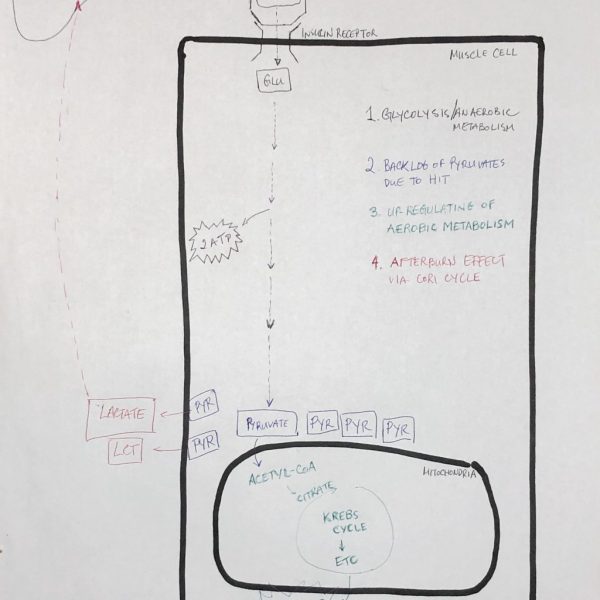 INSULIN RECEPTOR
MUSCLE CELL
GLU
1. GLYCOLYSIS/ANAEROBIC
METABOLISM
2. BACKLOG OF PYRUVATES
DUE TO HIT
3. UP-REGULATING OF
AEROBIC METABOLISM
4. AFTERBURN EFFECT
VIA CORI CYCLE
2 ATP
LACTATE
PYR
LCT
PYR
PYRUVATE
PYR
PYR
PYR
MITOCHONDRIA
ACETYL-COA
CITRATE
KREBS
CYCLE
ETC